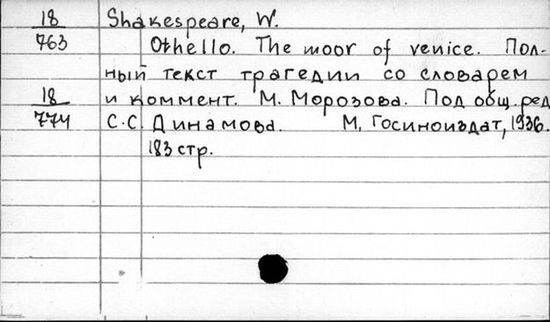 18 Shakespeare, W.
763 Othello. The moor of venice. Пол-
ный текст трагедии со словарем
18 и коммент. М. Морозова. Под общ. ред
774 С.С. Динамова. М, Госиноиздат, 1936.
183 стр.